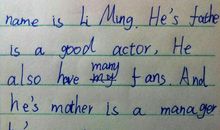 name is Li Ming. He's fathe
is a good actor, He
also have many fans. And
he's mother is a manager